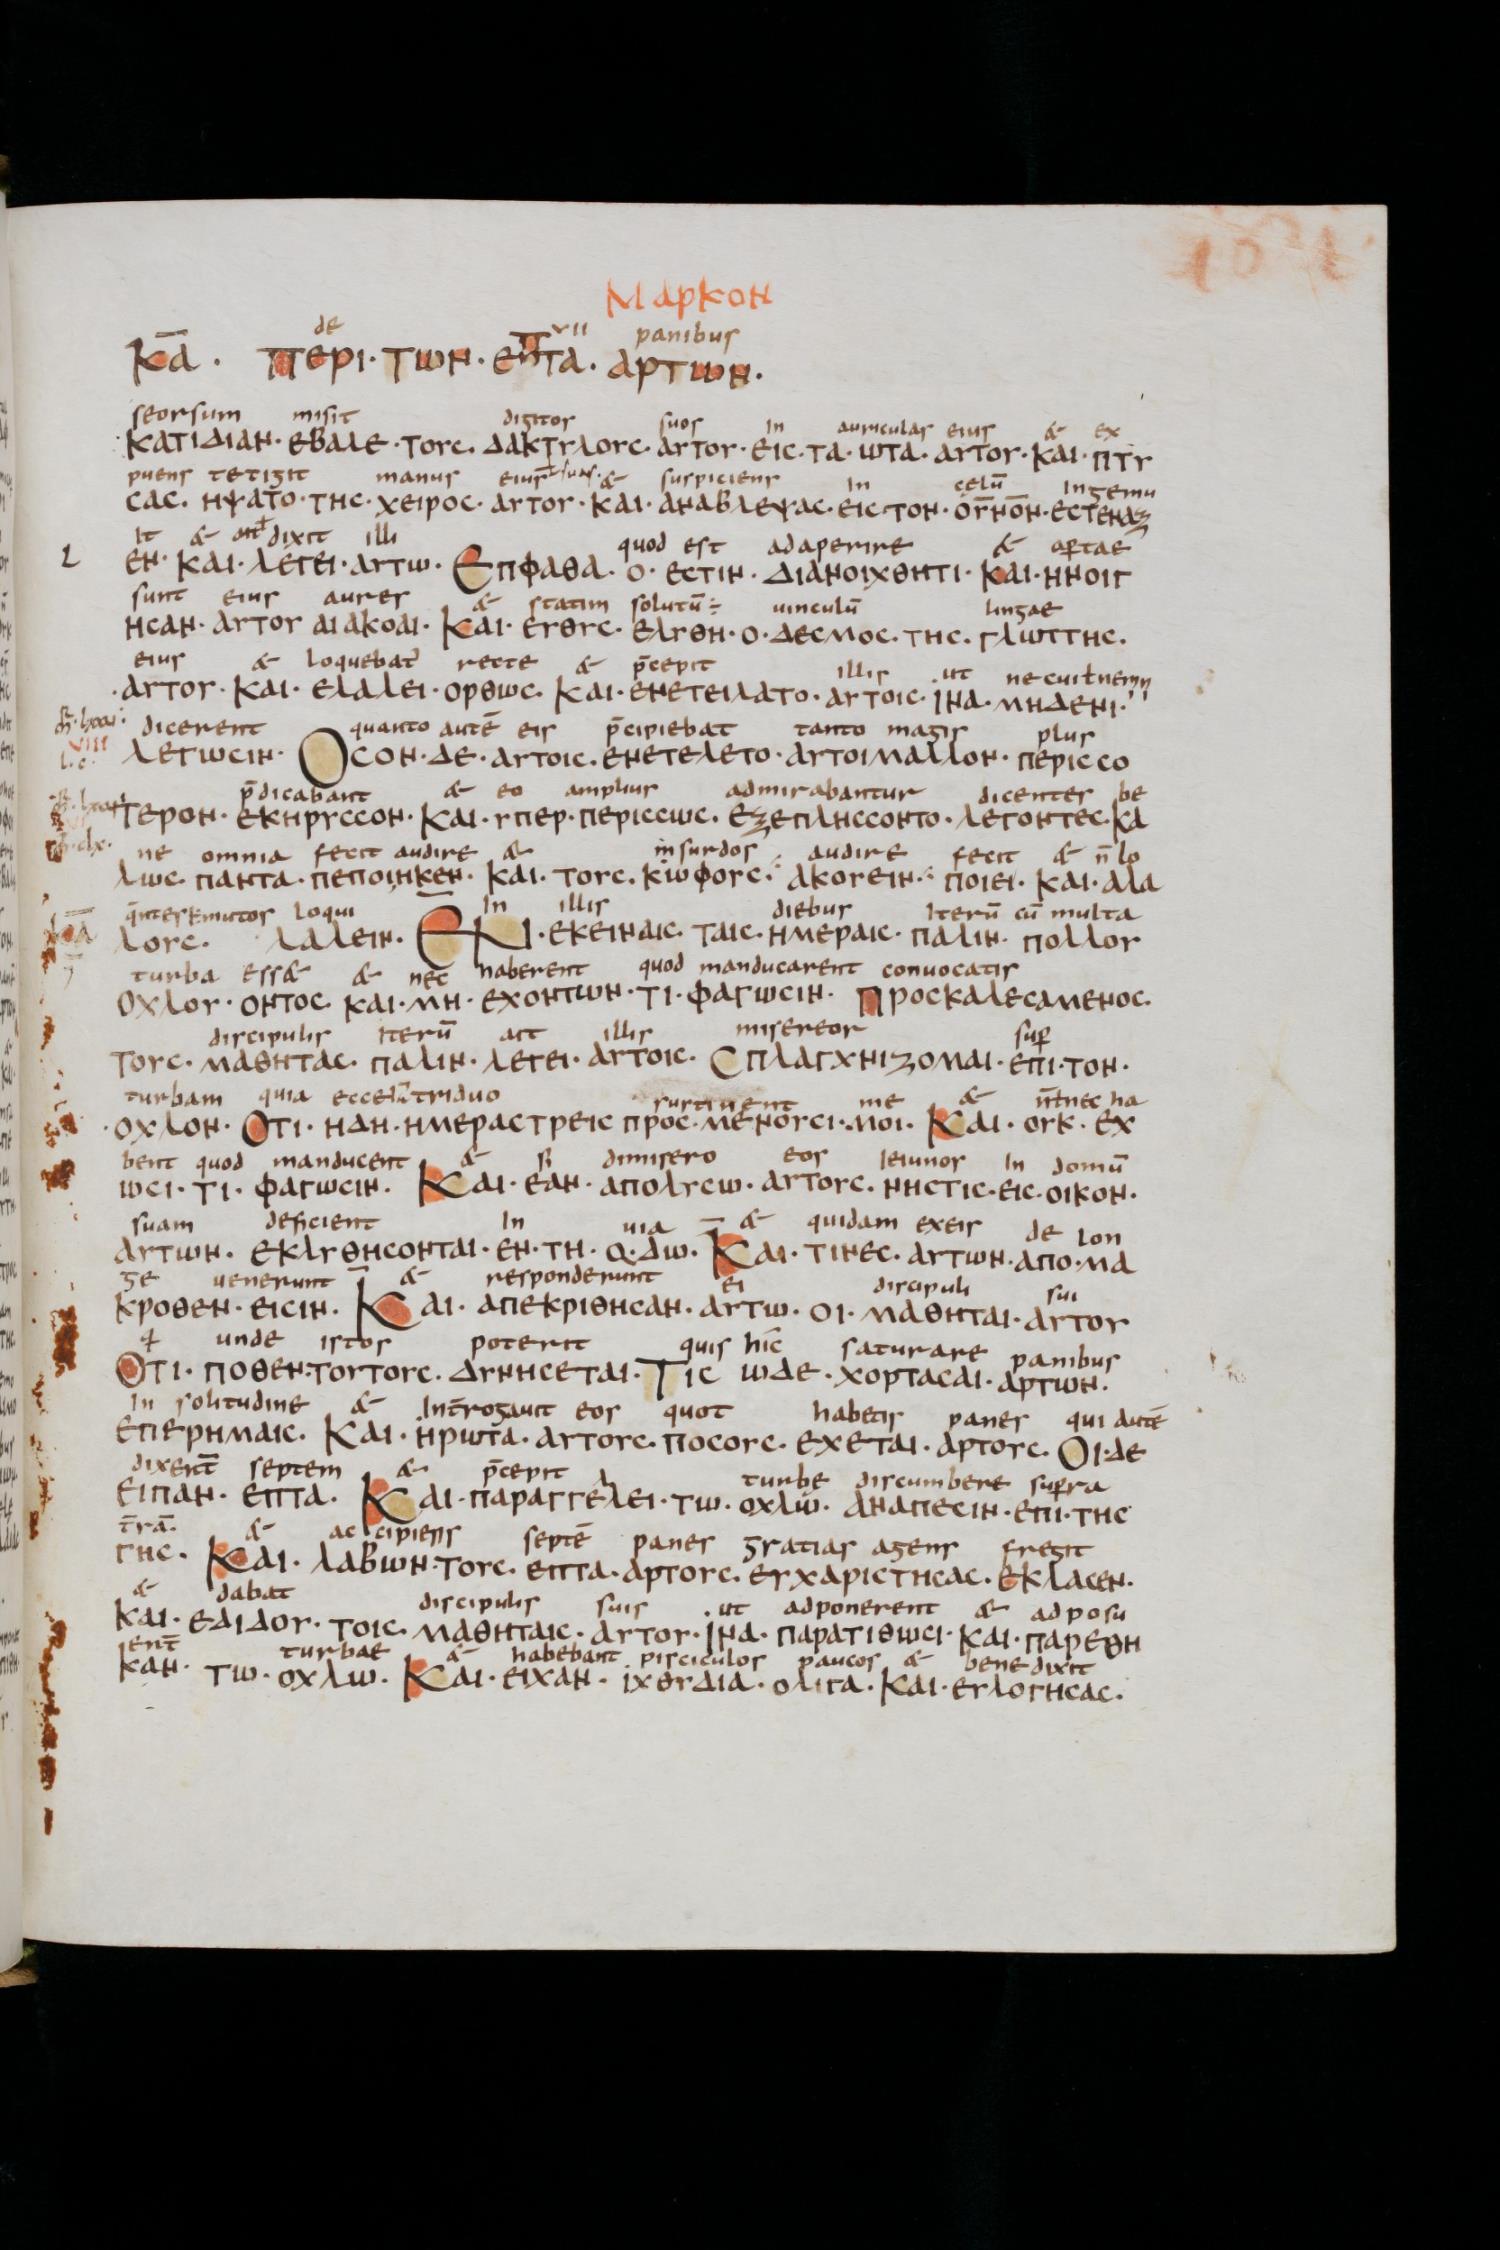 ΜΑΡΚΟΝ
de VII panibus
ΚΑ̅ · ΠΕΡΙ · ΤΩΝ · ΕΠΤΑ · ΑΡΤΩΝ ·
seorsum misit digitos suos in auriculas eius & ex
ΚΑΤΙΔΙΑΝ · ΕΒΑΛΕ · ΤΟΥC · ΔΑΚΤΥΛΟΥC · ΑΥΤΟΥ · ΕΙC · ΤΑ · ΩΤΑ · ΑΥΤΟΥ · ΚΑΙ · ΠΤΥ
puens tetigit manus eius & suspiciens in celū ingemu
CΑC · ΗΨΑΤΟ · ΤΗC · ΧΕΙΡΟC · ΑΥΤΟΥ · ΚΑΙ · ΑΝΑΒΛΕΨΑC · ΕΙC · ΤΟΝ · ΟΥ̅ΝΟ̅Ν · ΕCΤΕΝΑΖ
it & dixit illi quod est adaperire & aꝑtae
ΕΝ · ΚΑΙ · ΛΕΓΕΙ · ΑΥΤΩ · ΕΠΦΑΘΑ · Ο · ΕCΤΙΝ · ΔΙΑΝΟΙΧΘΗΤΙ · ΚΑΙ · ΗΝΟΙΓ
sunt eius aures & statim solutū ÷ uinculū lingae
ΗCΑΝ · ΑΥΤΟΥ ΑΙ ΑΚΟΑΙ · ΚΑΙ · ΕΥΘΥC · ΕΛΥΘΗ · Ο · ΔΕCΜΟC · ΤΗC · ΓΛΩΤΤΗC ·
eius & loquebat' recte & p̄cepit illis ut
ΑΥΤΟΥ · ΚΑΙ · ΕΛΑΛΕΙ · ΟΡΘΩC · ΚΑΙ · ΕΝΕΤΕΙΛΑΤΟ · ΑΥΤΟΙC · ΙΝΑ · ΜΗΔΕΝΙ ·
dicerent quanto autē eis p̄cipiebat tanto magis plus
ΛΕΓΩCΙΝ · ΟCΟΝ · ΔΕ · ΑΥΤΟΙC · ΕΝΕΤΕΛΕΤΟ · ΑΥΤΟΙ ΜΑΛΛΟΝ · ΠΕΡΙCCΟ
p̄dicabant & eo amplius admirabantur dicentes be
ΤΕΡΟΝ · ΕΚΗΡΥCCΟΝ · ΚΑΙ · ΥΠΕΡ · ΠΕΡΙCCΩC · ΕΖΕΠΛΗCCΟΝΤΟ · ΛΕΓΟΝΤΕC · ΚΑ
ne omnia fecit audire & surdos audire fecit & n̄ lo
ΛΩC · ΠΑΝΤΑ · ΠΕΠΟΙΗΚΕΝ · ΚΑΙ · ΤΟΥC · ΚΩΦΟΥC · ΑΚΟΥΕΙΝ · ΠΟΙΕΙ · ΚΑΙ · ΑΛΑ
loqui in illis diebus iterū cū multa
ΛΟΥC · ΛΑΛΕΙΝ · ΕΝ · ΕΚΕΙΝΑΙC · ΤΑΙC · ΗΜΕΡΑΙC · ΠΑΛΙΝ · ΠΟΛΛΟΥ
turba ess& & nec haberent quod manducarent convocatis
ΟΧΛΟΥ · ΟΝΤΟC · ΚΑΙ · ΜΗ · ΕΧΟΝΤΩΝ · ΤΙ · ΦΑΓΩCΙΝ · ΠΡΟCΚΑΛΕCΑΜΕΝΟC ·
discipulis iterū ait illis misereor suꝑ
ΤΟΥC · ΜΑΘΗΤΑC · ΠΑΛΙΝ · ΛΕΓΕΙ · ΑΥΤΟΙC · CΠΛΑΓΧΝΙΖΟΜΑΙ · ΕΠΙ · ΤΟΝ ·
turbam quia ecce triduo sustinent me & nec ha
ΟΧΛΟΝ · ΟΤΙ · ΗΔΗ · ΗΜΕΡΑC ΤΡΕΙC ΠΡΟC · ΜΕΝΟΥCΙ · ΜΟΙ · ΚΑΙ · ΟΥΚ · ΕΧ
bent quod manducent & si dimisero eos ieiunos in domū
ΩCΙ · ΤΙ · ΦΑΓΩCΙΝ · ΚΑΙ · ΕΑΝ · ΑΠΟΛΥCΩ · ΑΥΤΟΥC · ΝΗCΤΙC · ΕΙC · ΟΙΚΟΝ ·
suam deficient in uia & quidam exeis de lon
ΑΥΤΩΝ · ΕΚΛΥΘΗCΟΝΤΑΙ · ΕΝ · ΤΗ · Ο · ΔΩ · ΚΑΙ · ΤΙΝΕC · ΑΥΤΩΝ · ΑΠΟ · ΜΑ
ge uenerunt & responderunt ei discipuli sui
ΚΡΟΘΕΝ · ΕΙCΙΝ · ΚΑΙ · ΑΠΕΚΡΙΘΗCΑΝ · ΑΥΤΩ · ΟΙ · ΜΑΘΗΤΑΙ · ΑΥΤΟΥ
unde istos poterit quis hic saturare panibus
ΟΤΙ · ΠΟΘΕΝ · ΤΟΥΤΟΥC · ΔΥΝΗCΕΤΑΙ · ΤΙC ΩΔΕ · ΧΟΡΤΑCΑΙ · ΑΡΤΩΝ ·
in solitudine & int̄rogauit eos quot habetis panes qui autē
ΕΠΕΡΗΜΑΙC · ΚΑΙ · ΗΡΩΤΑ · ΑΥΤΟΥC · ΠΟCΟΥC · ΕΧΕΤΑΙ · ΑΡΤΟΥC · ΟΙ · ΔΕ
dixer̄t septem & p̄cepit turbe discumbere suꝑra
ΕΙΠΑΝ · ΕΠΤΑ · ΚΑΙ · ΠΑΡΑΓΓΕΛΕΙ · ΤΩ · ΟΧΛΩ · ΑΝΑΠΕCΙΝ · ΕΠΙ · ΤΗC
t̄rā & accipiens septē panes gratias agens fregit
ΓΗC · ΚΑΙ · ΛΑΒΩΝ · ΤΟΥC · ΕΠΤΑ · ΑΡΤΟΥC · ΕΥΧΑΡΙCΤΗCΑC · ΕΚΛΑCΕΝ ·
& dabat discipulis suis ut adponerent & adposu
ΚΑΙ · ΕΔΙΔΟΥ · ΤΟΙC · ΜΑΘΗΤΑΙC · ΑΥΤΟΥ · ΙΝΑ · ΠΑΡΑΤΙΘΩCΙ · ΚΑΙ · ΠΑΡΕΘΗ
ier̄t turbae & habebant pisciculos paucos & benedixit
ΚΑΝ · ΤΩ · ΟΧΛΩ · ΚΑΙ · ΕΙΧΑΝ · ΙΧΘΥΔΙΑ · ΟΛΙΓΑ · ΚΑΙ · ΕΥΛΟΓΗCΑC ·